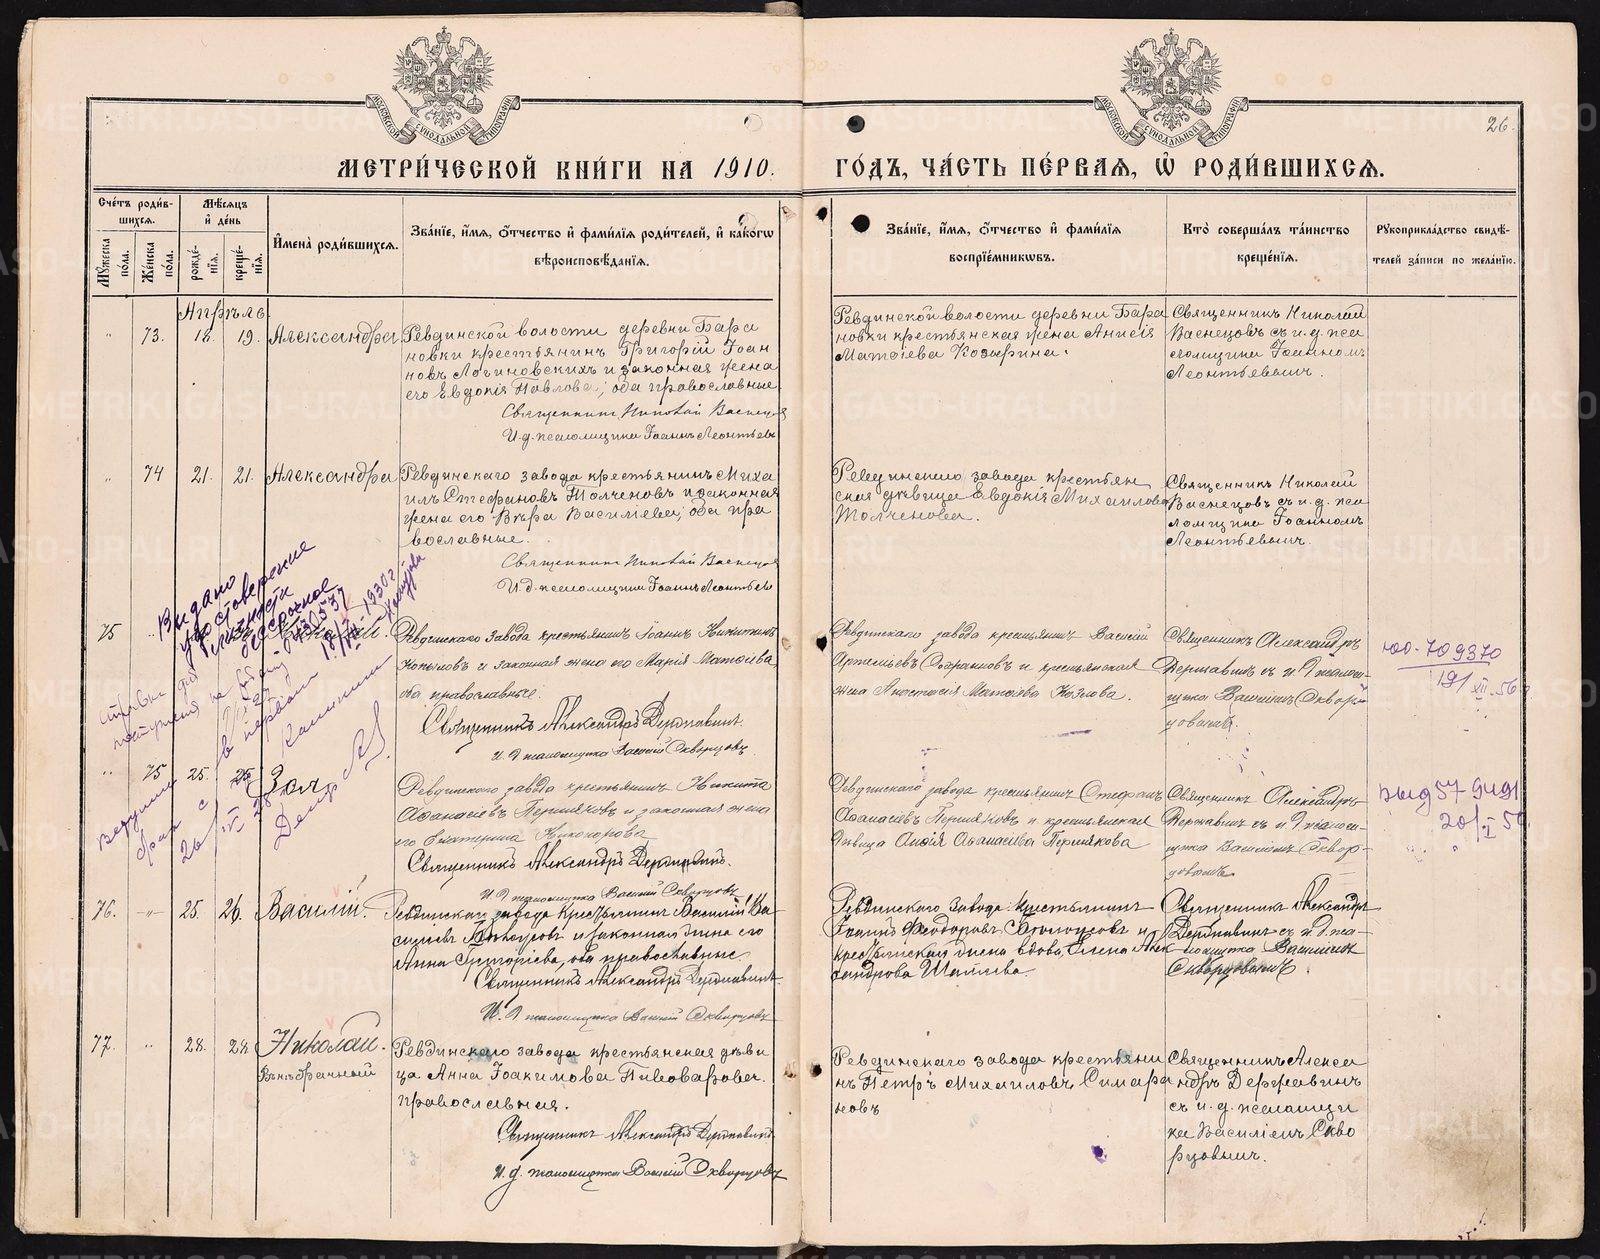 МЕТРИ́ЧЕСКОЙ КНИ́ГИ НА 1910.
ГО́ДЪ, ЧА́СТЬ ПЕ́РВАѦ, Ѡ҆ РОДИ́ВШИХСѦ.
26.
Сче́тъ роди́в-
шихсѧ.
Мꙋ́жеска
по́ла.
Же́нска
по́ла.
Мѣ́сѧцъ
и҆ де́нь
рожде́-
нїѧ.
креще́-
нїѧ.
И҆мена̀ роди́вшихсѧ.
Зва́нїе, и҆́мѧ, ѻ҆́тчество и҆ фами́лїѧ роди́телей, и҆ како́гѡ
вѣроисповѣ́данїѧ.
Зва́нїе, и҆́мѧ, ѻ҆́тчество и҆ фами́лїѧ
воспрїе́мникѡвъ.
Кто̀ соверша́лъ та́инство
креще́нїѧ.
Рꙋкоприкла́дство свидѣ́-
телей за́писи по жела́нїю.
Апрѣль
" 73. 18. 19. Александра
Ревдинской волости деревни Бара
новки крестьянинъ Григорій Іоан
новъ Логиновскихъ и законная жена
его Евдокія Павлова; оба православные
Священникъ Николай Васнецов
И.д. псаломщика Іоаннъ Леонтьевъ
Ревдинской волости деревни Бара
новки крестьянская жена Анисія
Матѳіева Козырина.
Священникъ Николай
Васнецовъ съ и.д. пса
ломщика Іоанномъ
Леонтьевымъ.
" 74 21. 21. Александра
Ревдинскаго завода крестьянинъ Миха
илъ Стефановъ Толченовъ и законная
жена его Вѣра Василіева; оба пра
вославные.
Священникъ Николай Васнецов
И.д. псаломщика Іоаннъ Леонтьев
Ревдинскаго завода крестьян
ская дѣвица Евдокія Михаилова
Толченова.
Священникъ Николай
Васнецовъ съ и.д. пса
ломщика Іоанномъ
Леонтьевымъ.
Выдано
удостоверение
личности
бессрочное
18/VII-1930г.
75
Ревдинскаго завода крестьянинъ Іоаннъ Никитинъ
Копыловъ и законная жена его Марія Матѳіева
оба православные.
Священникъ Александръ Державинъ.
И.д. псаломщика Василій Скворцовъ.
Ревдинскаго завода крестьянинъ Василій
Артеміевъ и крестьянская
жена Анастасія Матѳіева Козлова.
Священникъ Александръ
Державинъ съ и.д. псалом-
щика Василіемъ Сквор-
цовымъ.
ЮО-709370
19/XII.56г.
" 75 25. 25. Зоя
Ревдинскаго завода крестьянинъ Никита
Аѳанасіевъ Пермяковъ и законная жена
его Екатерина Никонорова
Священникъ Александръ Державинъ.
И.д. псаломщика Василій Скворцовъ
Ревдинскаго завода крестьянинъ Стефанъ
Аѳанасіевъ Пермяковъ и крестьянская
дѣвица Аѳанасіева Пермякова
Священникъ Александръ
Державинъ съ и.д. псалом-
щика Василіемъ Сквор-
цовымъ
76. -"- 25. 26. Василій.
Ревдинскаго завода крестьянинъ Василій Ва
силіевъ и законная жена его
Анна Григоріева, оба православные
Священникъ Александръ Державинъ
И.д. псаломщика Василій Скворцовъ
Ревдинскаго завода крестьянинъ
Іоаннъ Ѳеодоровъ и
крестьянская жена вдова Елена Алек
сандрова
Священникъ Александръ
Державинъ съ и.д. пса-
ломщика Василіемъ
Скворцовымъ.
77. " 28. 28 Николай.
Внѣбрачный
Ревдинскаго завода крестьянская дѣви
ца Анна Іоакимова Пивоварова.
православная.
Священникъ Александръ Державинъ
И.д. псаломщика Василій Скворцовъ
Ревдинскаго завода крестьяни
нъ Петръ Михаиловъ Симара
новъ
Священникъ Алекса
ндръ Державинъ
съ и.д. псаломщи
ка Василіемъ Скво
рцовымъ.